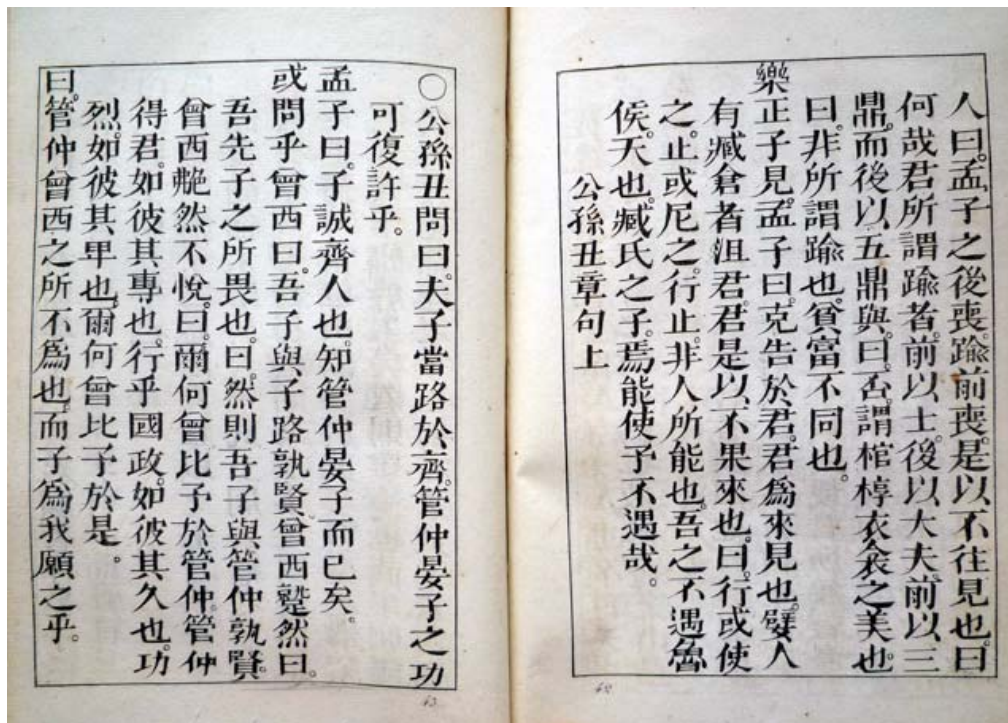 人曰。孟子之後喪。踰前喪。是以不往見也。曰
何哉君所謂踰者。前以士。後以大夫。前以三
鼎。而後以五鼎與。曰。否。謂棺椁衣衾之美也
曰。非所謂踰也。貧富不同也。
樂正子見。孟子曰。克告於君。君爲來見也。嬖人
有臧倉者沮君。君是以不果來也。曰。行或使
之。止或尼之。行止。非人所能也。吾之不遇魯
侯。天也。臧氏之子。焉能使予不遇哉。
公孫丑章句上
62
〇公孫丑問曰。夫子當路於齊。管仲晏子之功
可復許乎。
孟子曰。子誠齊人也。知管仲晏子而已矣。
或問乎曾西曰。吾子與子路孰賢。曾西蹵然曰。
吾先子之所畏也。曰。然則吾子與管仲孰賢。
曾西艴然不悅。曰。爾何曾比予於管仲。管仲
得君。如彼其專也。行乎國政。如彼其久也。功
烈。如彼其卑也。爾何曾比予於是。
曰。管仲曾西之所不爲也。而子爲我願之乎。
63